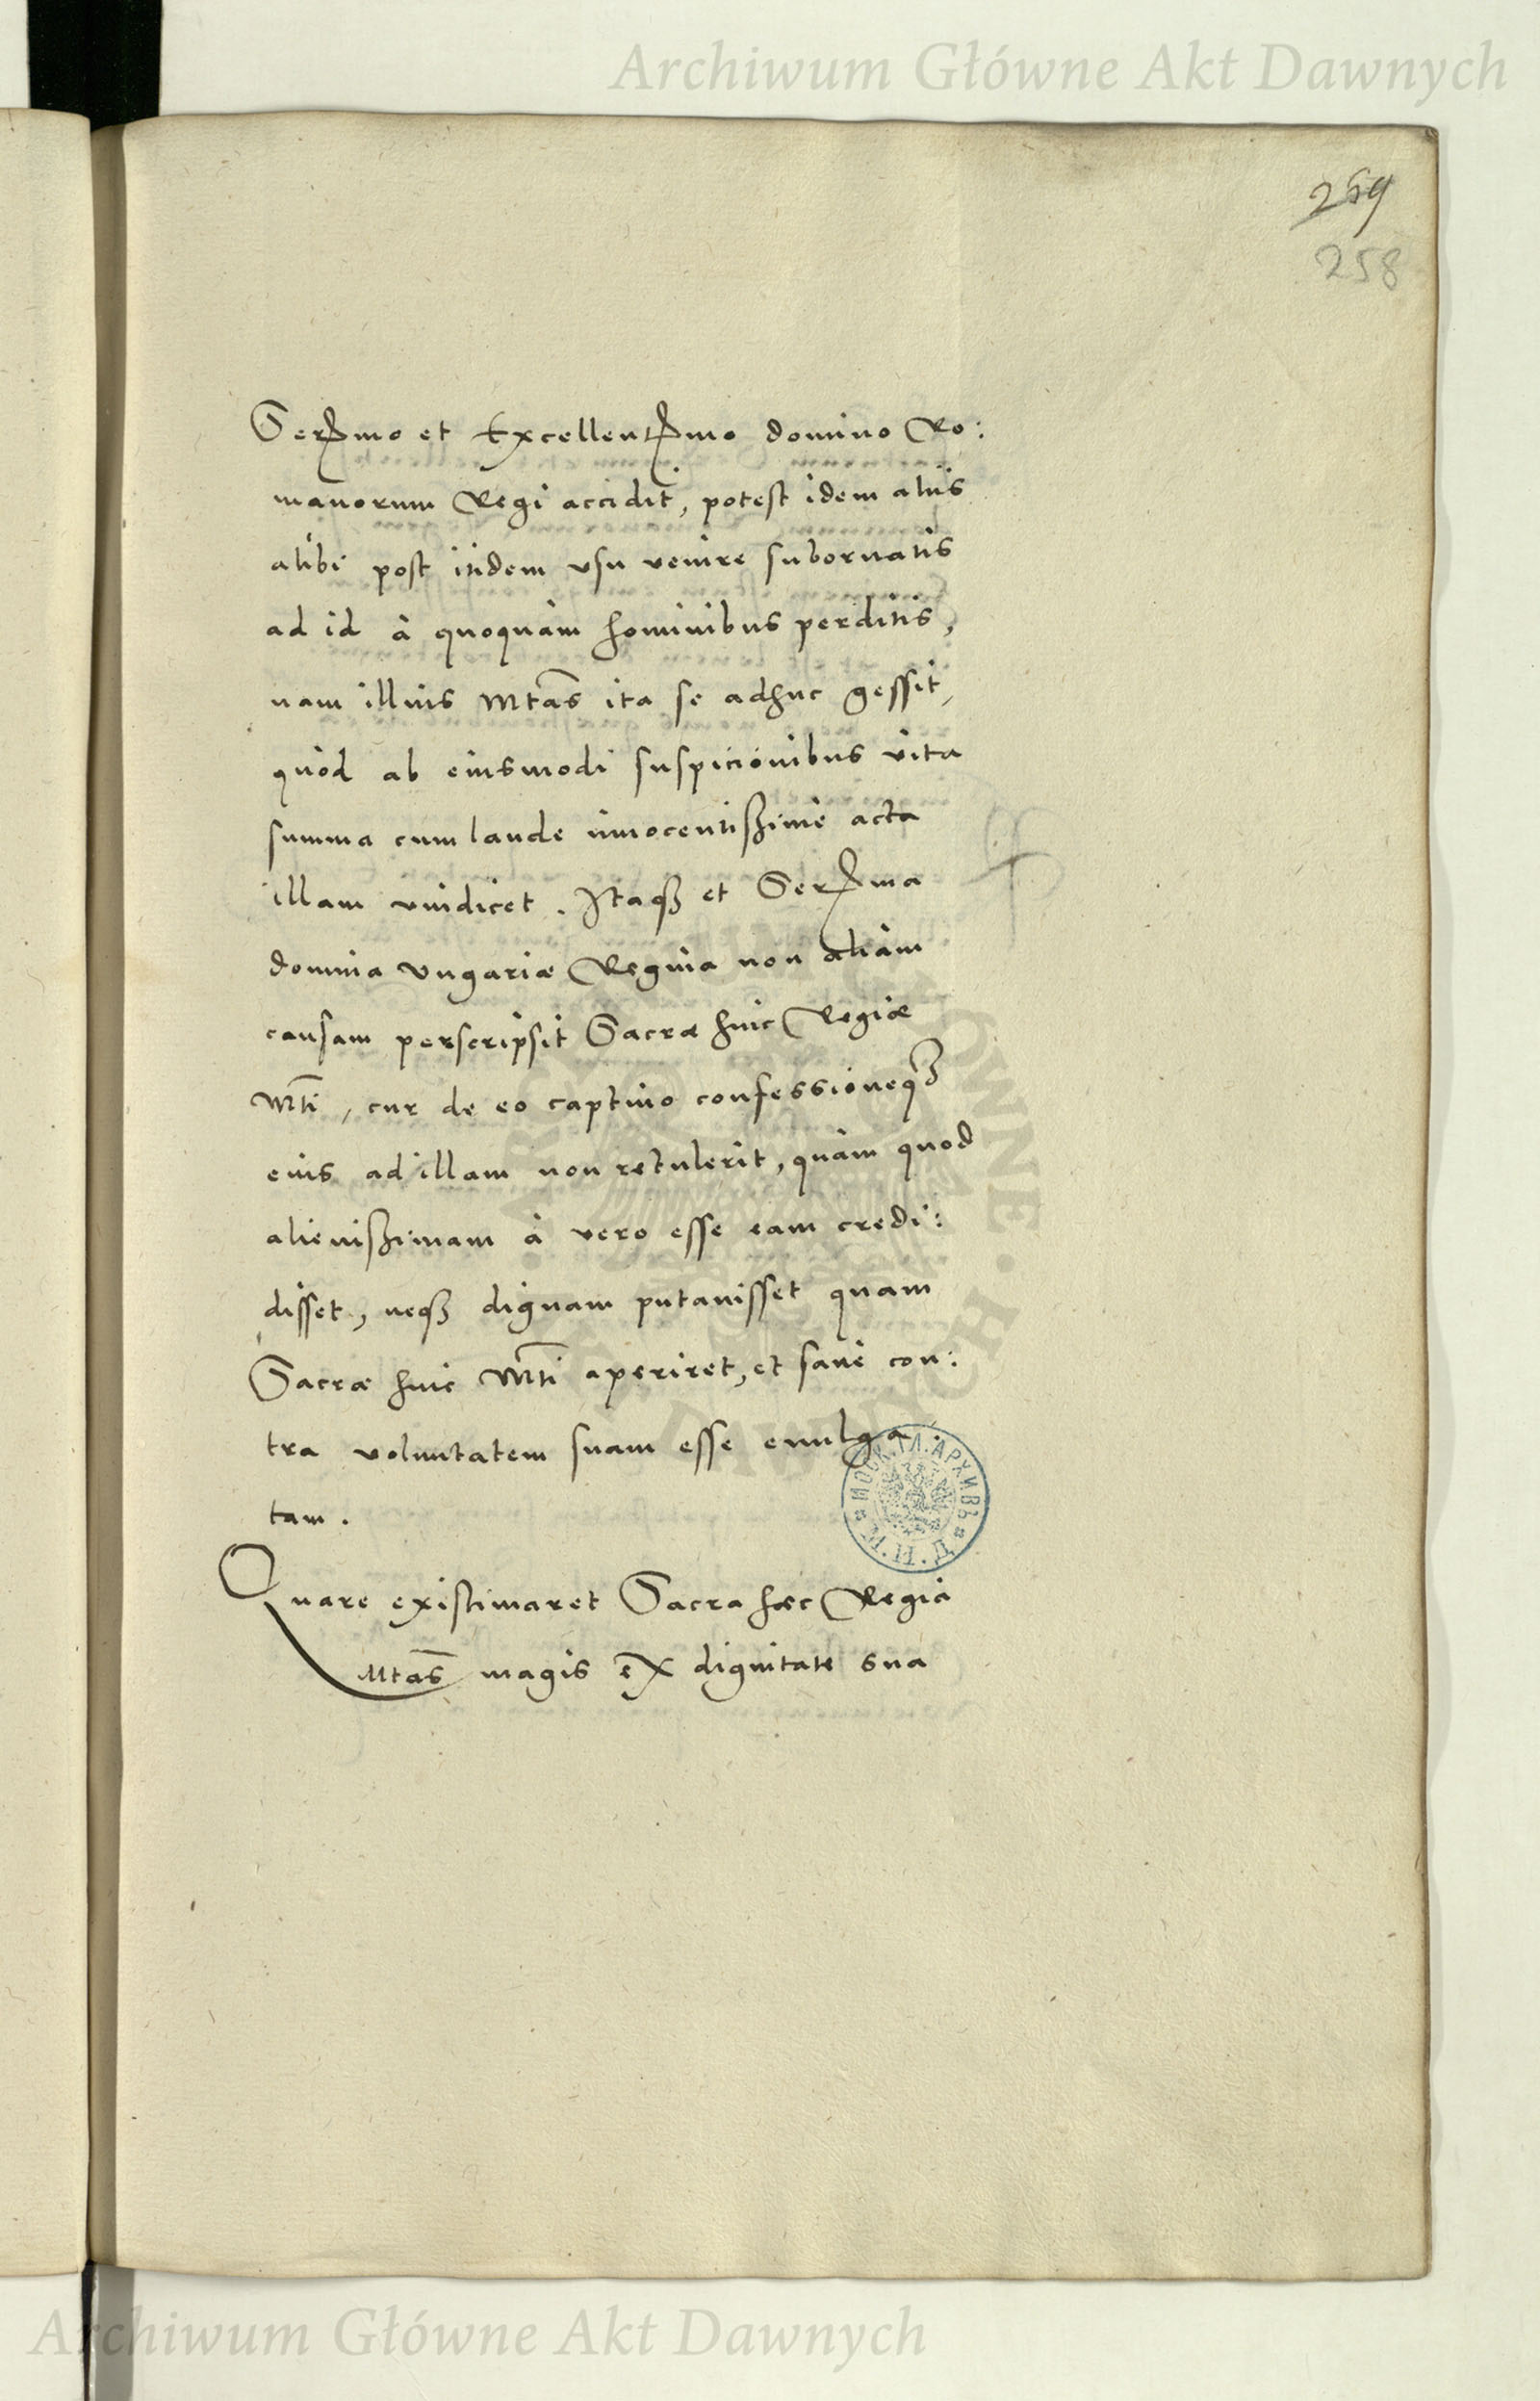 Archiwum Główne Akt Dawnych
259
258
Sermo et Excellentmo domino Ro:
manorum Regi accidit, potest idem aliis
alibi post itidem vsu venire subornatis
ad id à quoquàm hominibus perditis,
nam illius Mtas ita se adhuc gessit,
quòd ab eiusmodi suspicionibus vita
summa cum laude innocentißimè acta
illam vindicet. Itaqꝫ et Serma
domina Vngariæ Regina non aliàm
causam perscripsit Sacræ huic Regiæ
Mti, cur de eo captiuo confessioneqꝫ
eius ad illam non retulerit, quàm quod
alienißimam à vero esse eam credi:
disset, neqꝫ dignam putauisset quam
Sacræ huic Mti aperiret, et sanè con:
tra voluntatem suam esse euulga:
tam.
Quare existimaret Sacra hæc Regia
Mtas magis ex dignitate sua
МОСК. ГЛ. АРХИВЪ
М. И. Д.
Archiwum Główne Akt Dawnych